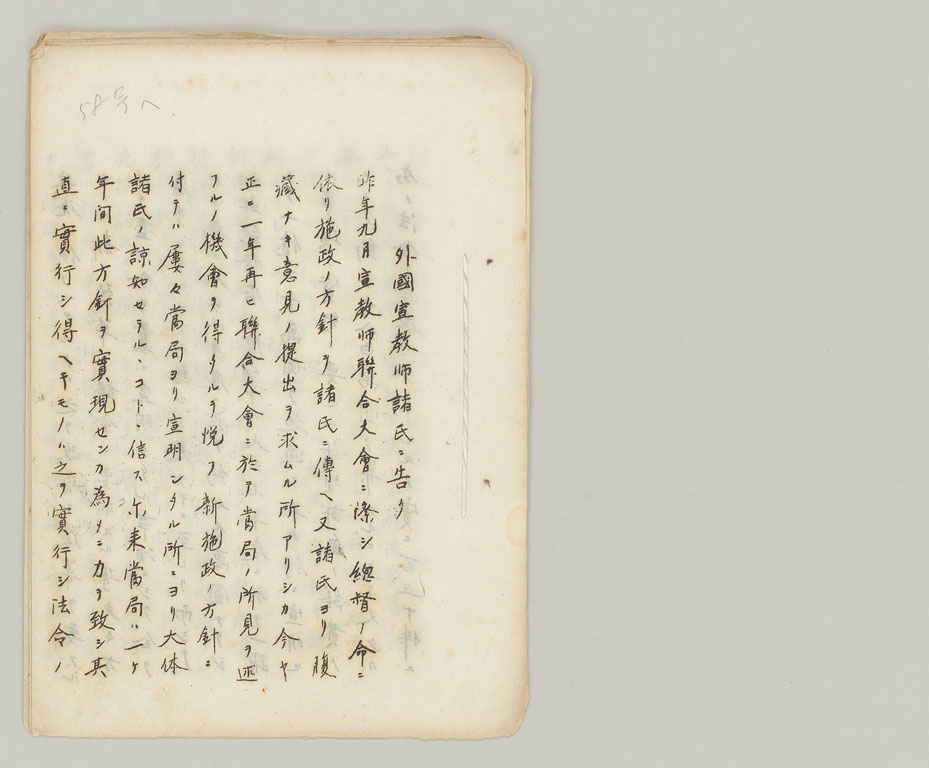 58号へ
外國宣教師諸氏ニ告ク
昨年九月宣教師聯合大會ニ際シ總督ノ命ニ
依リ施政ノ方針ヲ諸氏ニ傳ヘ又諸氏ヨリ腹
藏ナキ意見ノ提出ヲ求ムル所アリシカ今ヤ
正ニ一年再ヒ聯合大會ニ於テ當局ノ所見ヲ述
フルノ機會ヲ得タルヲ悦フ新施政ノ方針ニ
付テハ屢々當局ヨリ宣明シタル所ニヨリ大体
諸氏ノ諒知セラルヽコトヽ信ス尓来當局ハ一ケ
年間此方針ヲ實現センカ為メニ力ヲ致シ其
直ニ實行シ得ヘキモノハ之ヲ實行シ法令ノ